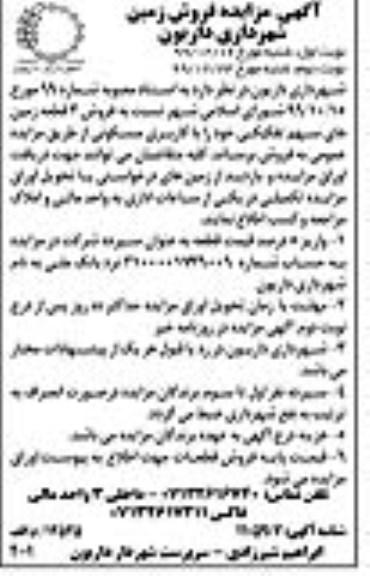 آگهی مزایده فروش زمین
شهرداری داریون
شهرداری داریون در نظر دارد به استناد مصوبه شماره ۹۹ مورخ
۹۹/۱۰/۱۵ شورای اسلامی شهر نسبت به فروش ۴ قطعه زمین
های سهم تفکیکی خود را با کاربری مسکونی از طریق مزایده
عمومی به فروش برساند. کلیه متقاضیان می توانند جهت دریافت
اوراق مزایده و بازدید از زمین های درخواستی و تحویل اوراق
مزایده تکمیلی در یکی از ساعات اداری به واحد مالی و املاک
مراجعه و کسب اطلاع نمایند.
۱- واریز ۵ درصد قیمت قطعه به عنوان سپرده شرکت در مزایده
به حساب شماره نزد بانک ملی به نام
شهرداری داریون
۲- مهلت یا زمان تحویل اوراق مزایده حداکثر ده روز پس از درج
نوبت دوم آگهی مزایده در روزنامه خبر
۳- شهرداری داریون در رد یا قبول هر یک از پیشنهادات مختار
می باشد.
۴- سپرده نفر اول تا سوم برندگان مزایده درصورت انصراف به
ترتیب به نفع شهرداری ضبط می گردد.
۵- هزینه درج آگهی به عهده برندگان مزایده می باشد.
۶- قیمت پایه فروش قطعات جهت اطلاع به پیوست اوراق
مزایده می شود.
تلفن تماس: - داخلی ۳ واحد مالی
فاکس
شناسه آگهی:
ابراهیم شیرزادی - سرپرست شهردار داریون